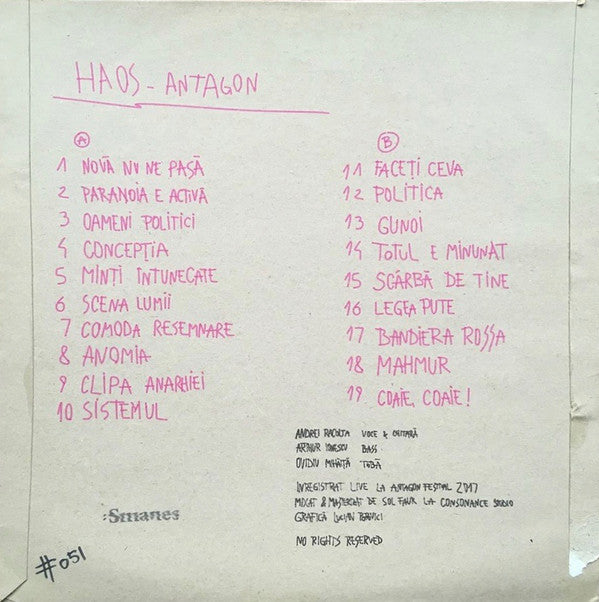 HAOS - ANTAGON
A
1 NOUĂ NU NE PASĂ
2 PARANOIA E ACTIVĂ
3 OAMENI POLITICI
4 CONCEPȚIA
5 MINȚI ÎNTUNECATE
6 SCENA LUMII
7 COMODA RESEMNARE
8 ANOMIA
9 CLIPA ANARHIEI
10 SISTEMUL
B
11 FACEȚI CEVA
12 POLITICA
13 GUNOI
14 TOTUL E MINUNAT
15 SCÂRBĂ DE TINE
16 LEGEA PUTE
17 BANDIERA ROSSA
18 MAHMUR
19 COAIE, COAIE!
ANDREI RACOLȚA VOCE & CHITARĂ
ARTHUR IONESCU BASS
OVIDIU MIHĂIȚĂ TOBĂ
ÎNREGISTRAT LIVE LA ANTAGON FESTIVAL 2017
MIXAT & MASTERIZAT DE SOL FAUR LA CONSONANCE STUDIO
GRAFICĂ LUCIAN
NO RIGHTS RESERVED
:Smanes
#051